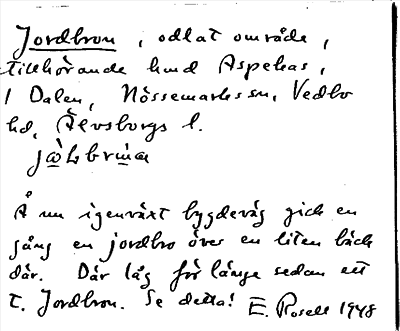 Jordbron, odlat område,
tillhörande hmd Aspehas,
i Dalen, Nössemarks sn, Vedbo
hd, Älvsborgs l.
Å nu igenväxt bygdeväg gick en
gång en jordbro över en liten bäck
där. Där låg för länge sedan ett
t. Jordbron. Se detta! E. Rosell 1948